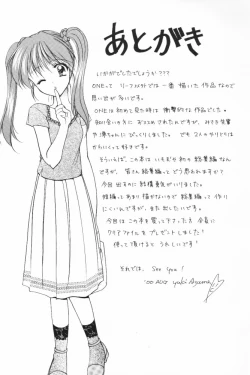 あとがき
いかがでしたでしょうか???
ONEって リーフメットでは 一番 描いた作品なので
思い出が多いです。
ONEに初めて出た時は 衝撃的な作品でした。
知り合いの方に おススメされたんですが、みさき先輩
や澪ちゃんに びっくりしました。でも 2人のシナリオは
かわいくって好きです。
そういえば、この本は いちおう初の総集編
なんですが、皆さん 総集編って どう思われますか?
今回 出すのに 結構勇気がいりました。
総編って あまり描かないので 総集編って 作り
にくいんですが、また出したいです。
今回は この本を買って下さった方 全員に
クリアファイルを プレゼントしました!
使って頂けると うれしいです!
それでは、See you!
'00 AUG yuki